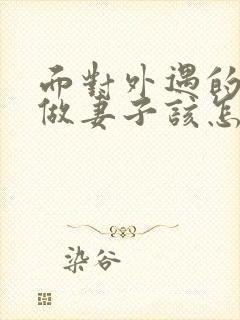 而對外遇的
做妻子該怎
染谷